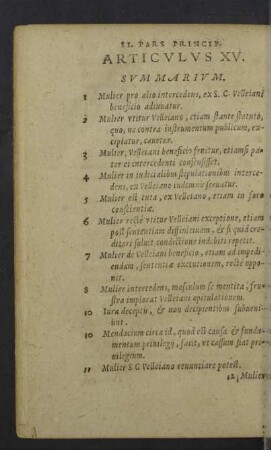 II. PARS PRINCIP.
ARTICVLVS XV.
SVMMARIVM.
1 Mulier pro alio intercedens, ex S. C. Velleiani
beneficio adiuuatur.
2 Mulier vtitur Velleiano, etiam stante statuto,
quo, ne contra instrumentum publicum, ex-
cipiatur, cauetur.
3 Mulier, Velleiani beneficio fruitur, etiamsi pa-
ter ei intercedenti consensisset.
4 Mulier in iudicialibus stipulationibus interce-
dens, ex Velleiano indemnis seruatur.
5 Mulier est tuta, ex Velleiano, etiam in foro
conscientiæ.
6 Mulier rectè vtitur Velleiani exceptione, etiam
post sententiam diffinitiuam, & si quid cre-
ditori soluit condictione indebiti repetet.
7 Mulier de Velleiani beneficio, etiam ad impedi-
endam, sententiæ executionem, rectè oppo-
nit.
8 Mulier intercedens, masculum se mentita, fru-
stra implorat Velleiani opitulationem.
9 Iura deceptis, & non decipientibus subueni-
unt.
10 Mendacium circa id, quod est causa & funda-
mentum priuilegij, facit, vt cassum fiat pri-
uilegium.
11 Mulier S. C. Velleiano renunciare potest.
12, Mulier